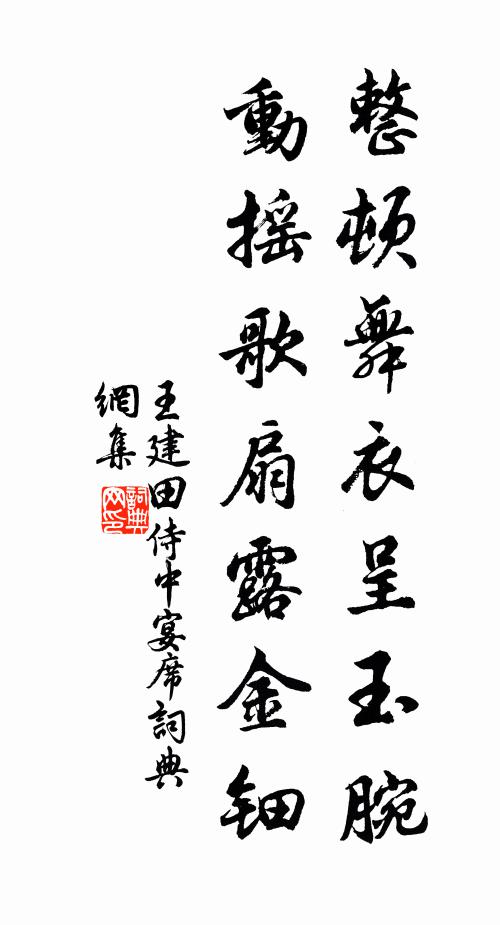 整頓舞衣呈玉腕
動搖歌扇露金鈿
王建田侍中宴席詞典
網集
詞典網印